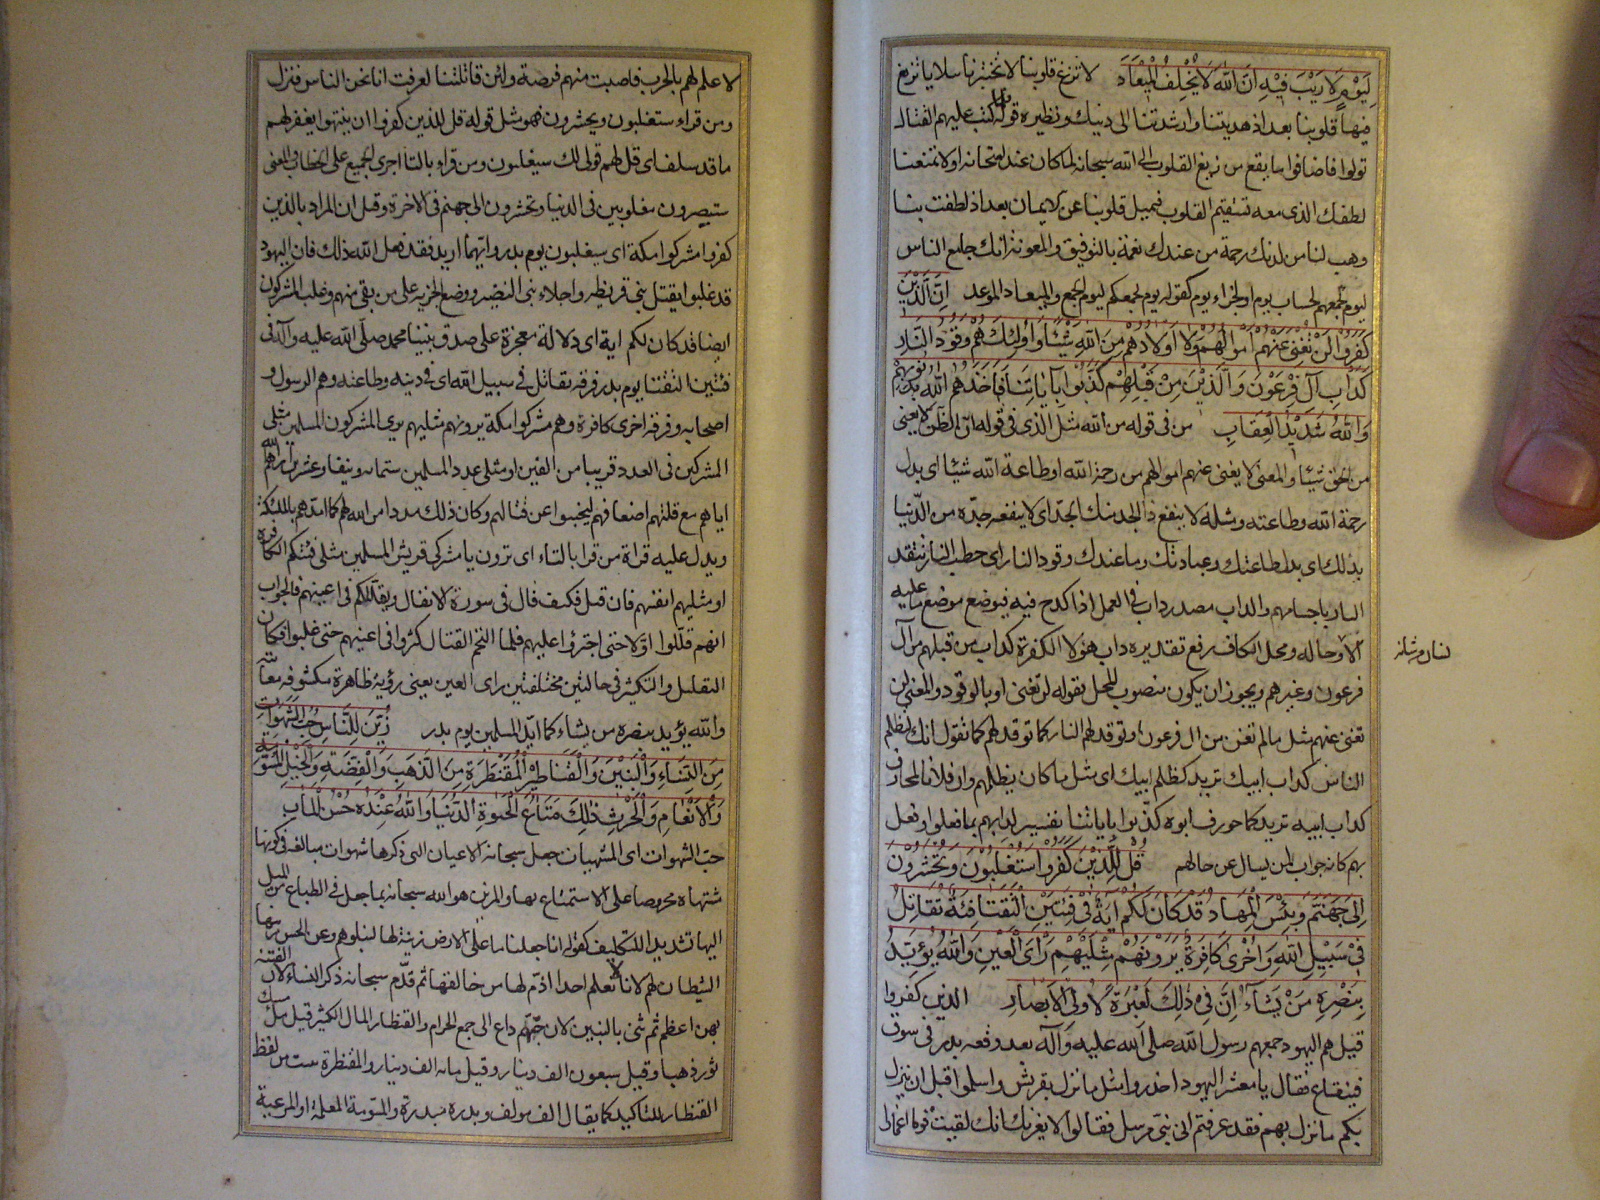 لِيَوْمٍ لَا رَيْبَ فِيْهِ اِنَّ اللّٰهَ لَا يُخْلِفُ الْمِيْعَادَ لا تزغ قلوبنا لا تختبرنا ببلايا تزيغ
فيها قلوبنا بعد اذ هديتنا وارشدتنا الى دينك ونظيره قوله فلما كتب عليهم القتال
تولوا فاضافوا ما يقع من زيغ القلوب الى الله سبحانه لما كان عند امتحانه او لا تمنعنا
لطفك الذى معه تستقيم القلوب فتميل قلوبنا عن الايمان بعد اذ لطفت بنا
وهب لنا من لدنك رحمة من عندك نعمة بالتوفيق والمعونة انك جامع الناس
ليوم تجمعهم لحساب يوم او لجزاء يوم كقوله يوم يجمعكم ليوم الجمع والميعاد الموعد اِنَّ الَّذِيْنَ
كَفَرُوْا لَنْ تُغْنِىَ عَنْهُمْ اَمْوَالُهُمْ وَلَا اَوْلَادُهُمْ مِنَ اللّٰهِ شَيْئًا وَاُولٰئِكَ هُمْ وَقُوْدُ النَّارِ
كَدَاْبِ آلِ فِرْعَوْنَ وَالَّذِيْنَ مِنْ قَبْلِهِمْ كَذَّبُوْا بِآيَاتِنَا فَاَخَذَهُمُ اللّٰهُ بِذُنُوْبِهِمْ
وَاللّٰهُ شَدِيْدُ الْعِقَابِ من فى قوله من الله مثل الذى فى قوله ان الظن لا يغنى
من الحق شيئا والمعنى لا يغنى عنهم اموالهم من رحمة الله او طاعة الله شيئا اى بدل
رحمة الله وطاعته ومثله لا ينفع ذا الجد منك الجد اى لا ينفعه جده من الدنيا
بذلك اى بدل طاعتك وعبادتك وما عندك وقود النار اى حطب النار تتقد
النار باجسامهم والداب مصدر داب فى العمل اذا كدح فيه فيوضع موضع ما عليه
الانسان من شانه
الاوحاله ومحل الكاف رفع تقديره داب هؤلا الكفرة كداب من قبلهم من آل
فرعون وغيرهم ويجوز ان يكون منصوب المحل بقوله لن تغنى او بالوقود والمعنى لن
تغنى عنهم مثل ما لم تغن من ال فرعون او توقد لهم النار كما توقد لهم كما تقول انك لتظلم
الناس كداب ابيك تريد كظلم ابيك اى مثل ما كان يظلمهم وان فلانا لمحارف
كداب ابيه تريد كما حورف ابوه كذبوا باياتنا تفسير لدابهم بما فعلوا وفعل
بهم كانه جواب لمن يسال عن حالهم قُلْ لِلَّذِيْنَ كَفَرُوْا سَتُغْلَبُوْنَ وَتُحْشَرُوْنَ
اِلٰى جَهَنَّمَ وَبِئْسَ الْمِهَادُ قَدْ كَانَ لَكُمْ ايَةٌ فِىْ فِئَتَيْنِ الْتَقَتَا فِئَةٌ تُقَاتِلُ
فِىْ سَبِيْلِ اللّٰهِ وَاُخْرٰى كَافِرَةٌ يَرَوْنَهُمْ مِثْلَيْهِمْ رَاْىَ الْعَيْنِ وَاللّٰهُ يُؤَيِّدُ
بِنَصْرِهِ مَنْ يَشَآءُ اِنَّ فِىْ ذٰلِكَ لَعِبْرَةً لِاُولِى الْاَبْصَارِ الذين كفروا
قيل هم اليهود جمعهم رسول الله صلى الله عليه وآله بعد وقعه بدر فى سوق
قينقاع فقال يا معشر اليهود احذروا مثل ما نزل بقريش واسلموا قبل ان ينزل
بكم ما نزل بهم فقد عرفتم انى نبى مرسل فقالوا لا يغرنك انك لقيت قوما اغمارا
لا علم لهم بالحرب فاصبت منهم فرصة ولئن قاتلتنا لعرفت انا نحن الناس فنزل
ومن قراء ستغلبون ويحشرون فهو مثل قوله قل للذين كفروا ان ينتهوا يغفر لهم
ما قد سلف اى قل لهم قولى لك سيغلبون ومن قراء بالتا اجرى الجميع على الخطاب والمعنى
ستصيرون مغلوبين فى الدنيا وتحشرون الى جهنم فى الاخرة وقيل ان المراد بالذين
كفروا مشركوا مكة اى سيغلبون يوم بدر وايهما اريد فقد فعل الله ذلك فان اليهود
قد غلبوا بقتل بنى قريظه واجلاء بنى النضير ووضع الجزيه على من بقى منهم وغلب المشركون
ايضا قد كان لكم اية اى دلالة معجزة على صدق نبينا محمد صلى الله عليه وآله فى
فئتين التقتا يوم بدر فرقه تقاتل فى سبيل الله اى فى دينه وطاعته وهم الرسول و
اصحابه وفرقه اخرى كافرة وهم مشركوا مكة يرونهم مثليهم يرى المشركون المسلمين مثلى
المشركين فى العدد قريبا من الفين او مثلى عدد المسلمين ستمائه ونيفا وعشرين اراهم الله
اياهم مع قلتهم اضعافهم ليجبنوا عن قتالهم وكان ذلك مددا من الله لهم كما امدهم بالملئكة
ويدل عليه قراة من قرا بالتاء اى ترون يا مشركى قريش المسلمين مثلى فئتكم الكافرة
او مثليهم انفسهم فان قيل فكيف قال فى سورة الانفال ويقللكم فى اعينهم فالجواب
انهم قللوا اولا حتى اجترؤا عليهم فلما التحم القتال كثروا فى اعينهم حتى غلبوا فكان
التقليل والتكثير فى حالتين مختلفتين راى العين يعنى رؤية ظاهرة مكشوفه
والله يؤيد بنصره من يشاء كما ايد المسلمين يوم بدر زُيِّنَ لِلنَّاسِ حُبُّ الشَّهَوَاتِ
مِنَ النِّسَاءِ وَالْبَنِيْنَ وَالْقَنَاطِيْرِ الْمُقَنْطَرَةِ مِنَ الذَّهَبِ وَالْفِضَّةِ وَالْخَيْلِ الْمُسَوَّمَةِ
وَالْاَنْعَامِ وَالْحَرْثِ ذٰلِكَ مَتَاعُ الْحَيٰوةِ الدُّنْيَا وَاللّٰهُ عِنْدَهُ حُسْنُ الْمَاٰبِ
حب الشهوات اى المشتهيات جعل سبحانه الاعيان التى ذكرها شهوات مبالغه فى كونها
مشتهاه محروصا على الاستمتاع بها والمزين هو الله سبحانه بما جعل فى الطباع من الميل
اليها تشديدا للتكليف كقوله انا جعلنا ما على الارض زينة لها لنبلوهم وعن الحسن زينها
الشيطان لهم لانا لا نعلم احدا اذم لها من خالقها ثم قدم سبحانه ذكر النساء لان الفتنة
بهن اعظم ثم ثنى بالبنين لان حبهم داع الى جمع الحرام والقنطار المال الكثير قيل مسك
ثور ذهبا وقيل سبعون الف دينار وقيل مائه الف دينار والمقنطرة من لفظ
القنطار للتاكيد كما يقال الف مولف وبدرة مبدرة والمسومة المعلمة او المرعية